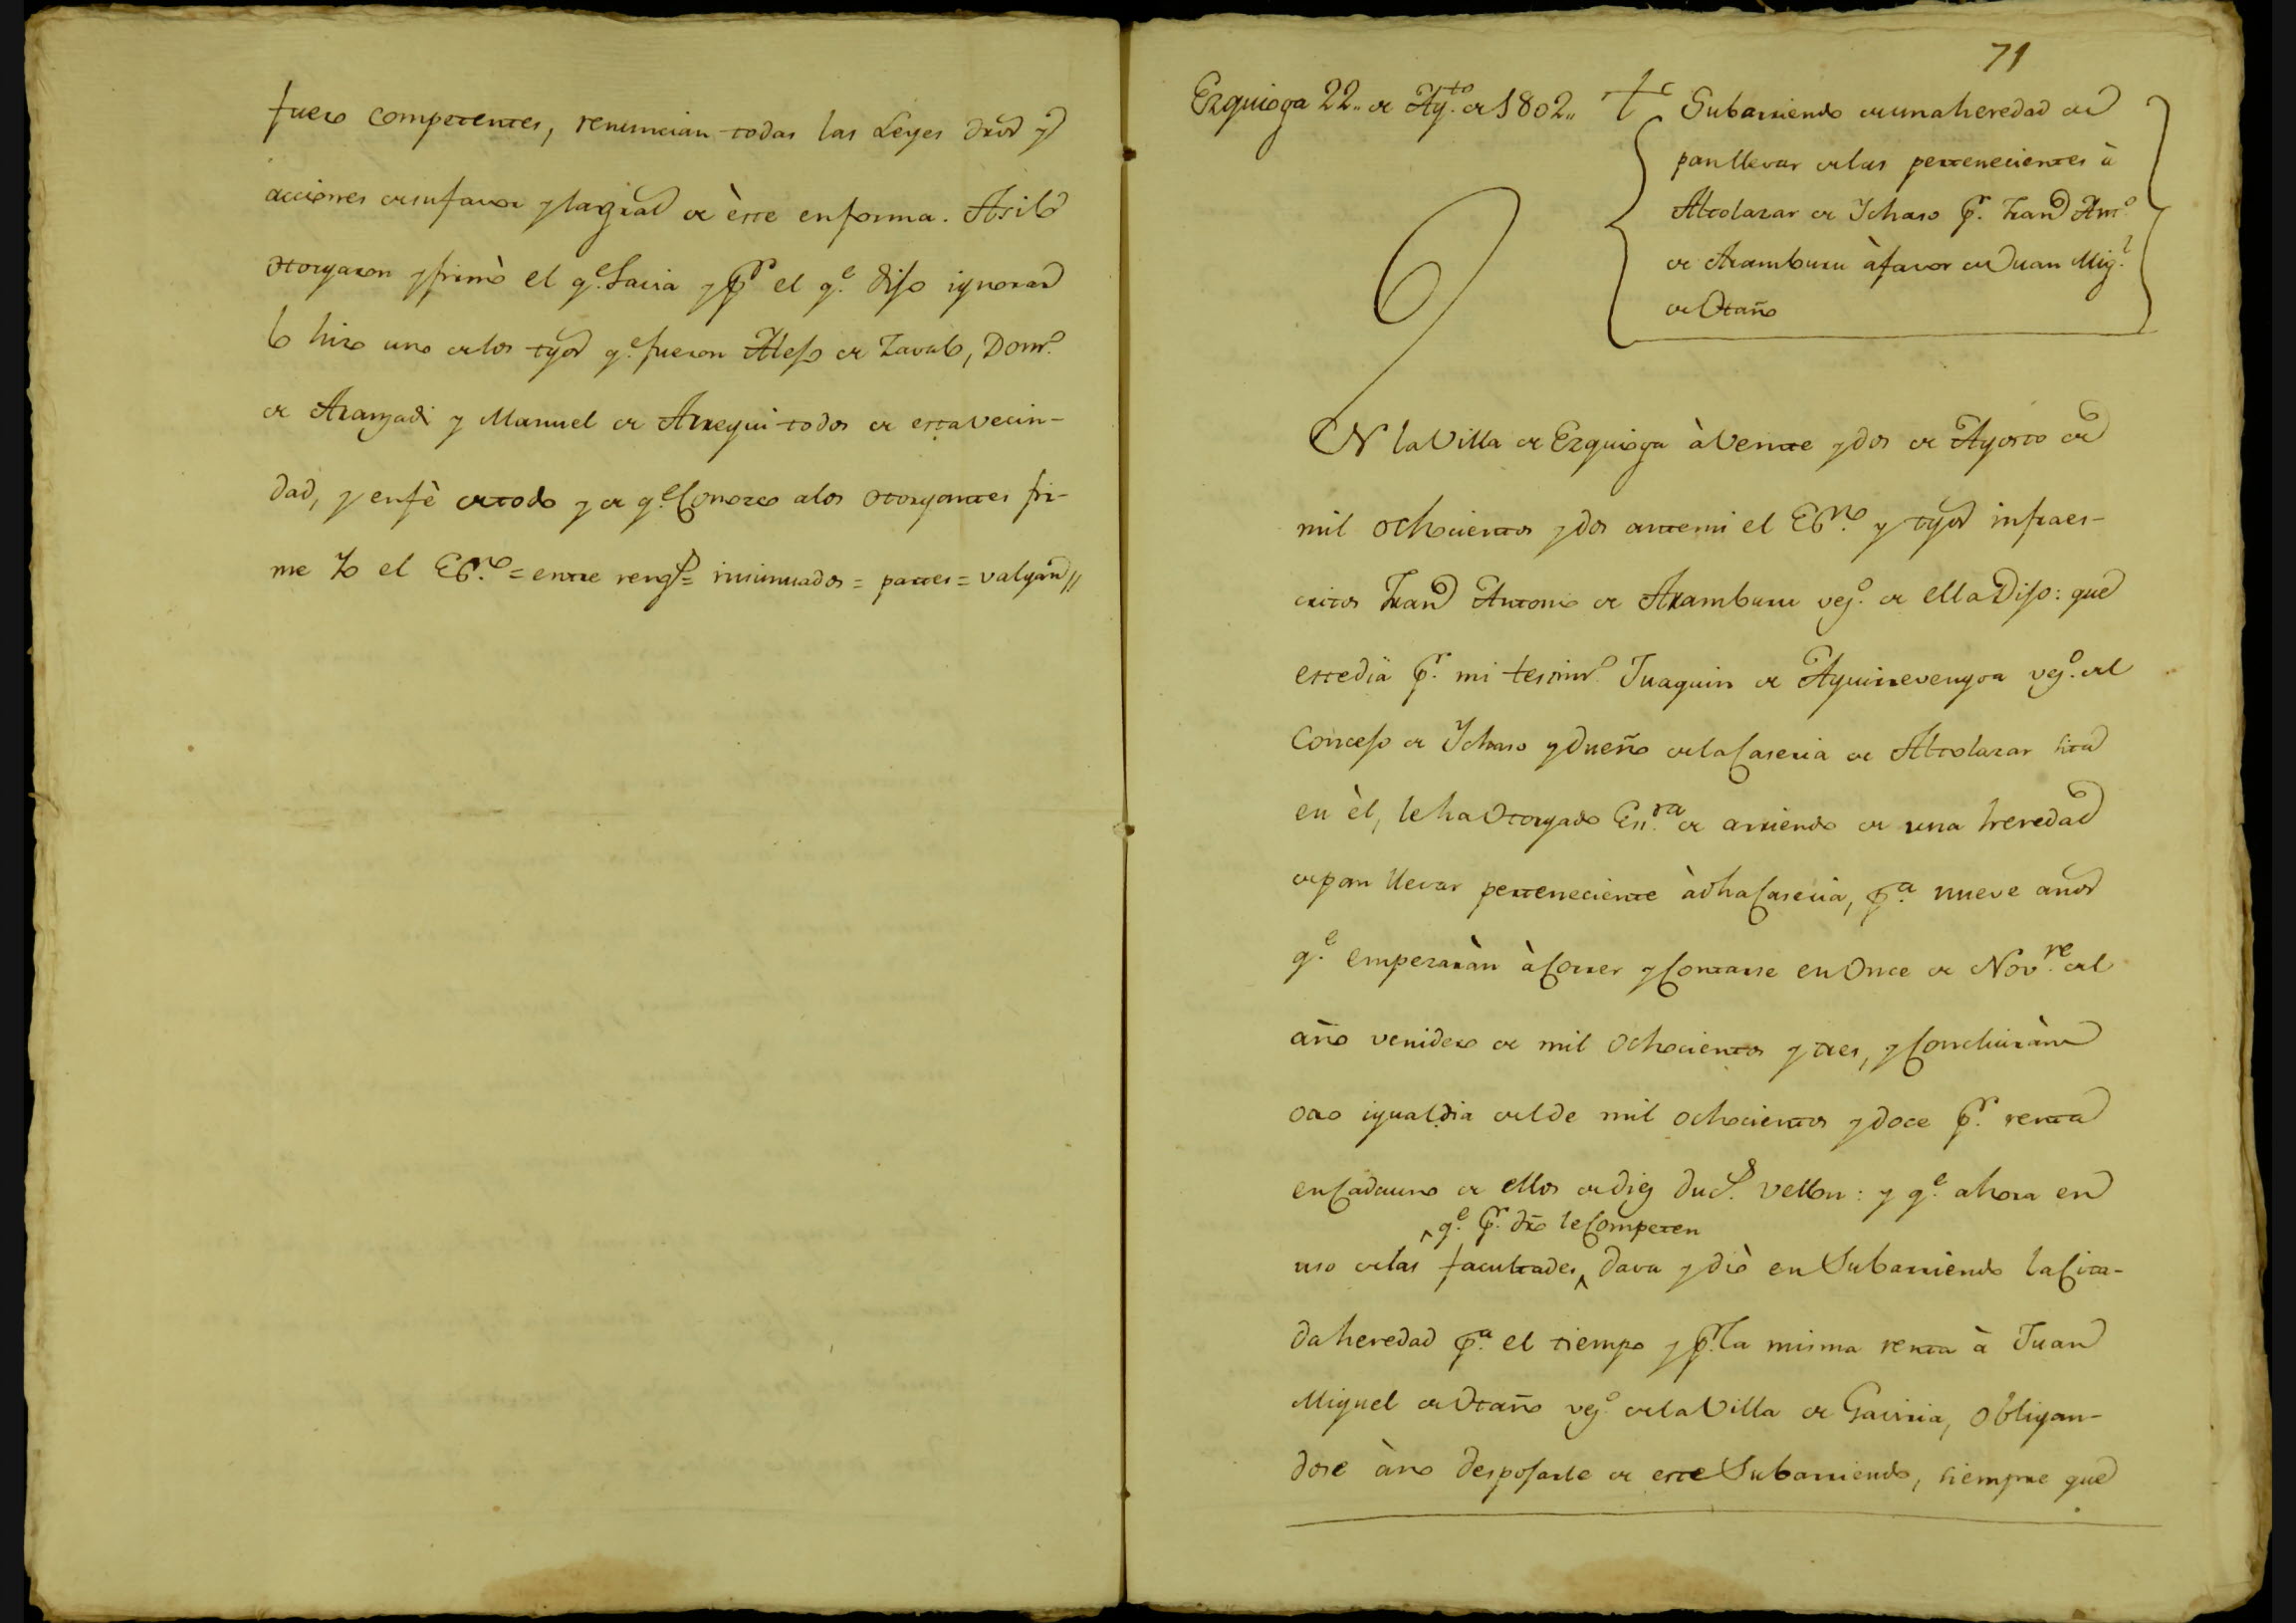 fuero competentes, renuncian todas las Leyes dros y
acciones de su favor y la gral de èste en forma. Asi lo
otorgaron y firmò el q.e Savia y p.r el q.e dijo ignorar
lo hizo uno de los tgos q.e fueron Alejo de Zavalo, Dom.o
de Aranzadi y Manuel de Arregui todos de esta vecin-
dad, y en fè de todo y de q.e Conozco a los otorgantes fir-
me Yo el Es.no = entre rengs = insinuados = partes = valgan //
71
Ezquioga 22,, de Ag.to de 1802,,
Subarriendo de una heredad de
pan llevar de las pertenecientes à
Altolazar de Ichaso p.r Fran.co Ant.o
de Aramburu à favor de Juan Mig.l
de Otaño
EN la Villa de Ezquioga à Veinte y dos de Agosto de
mil ochocientos y dos ante mi el Es.no y tgos infraes-
critos Fran.co Antonio de Aramburu vez.o de ella Dijo: que
este dia p.r mi testim.o Juaquin de Aguirrevengoa vez.o del
Concejo de Ichaso y dueño de la Caseria de Altolazar sita
en èl, le ha Otorgado Es.ra de arriendo de una heredad
de pan llevar perteneciente à dha Caseria, p.a nueve años
q.e empezaràn à Correr y Contarse en Once de Nov.re del
año venidero de mil ochocientos y tres, y Concluiràn
otro igual dia del de mil ochocientos y doce p.r renta
en Cada uno de ellos de diez duc.s vellon: y q.e ahora en
^ q.e p.r dro le Competen
uso de las facultades ^ dava y diò en Subarriendo la Cita-
da heredad p.a el tiempo y p.r la misma renta à Juan
Miguel de Otaño vez.o de la Villa de Gaviria, obligan-
dose à no despojarle de este Subarriendo, siempre que